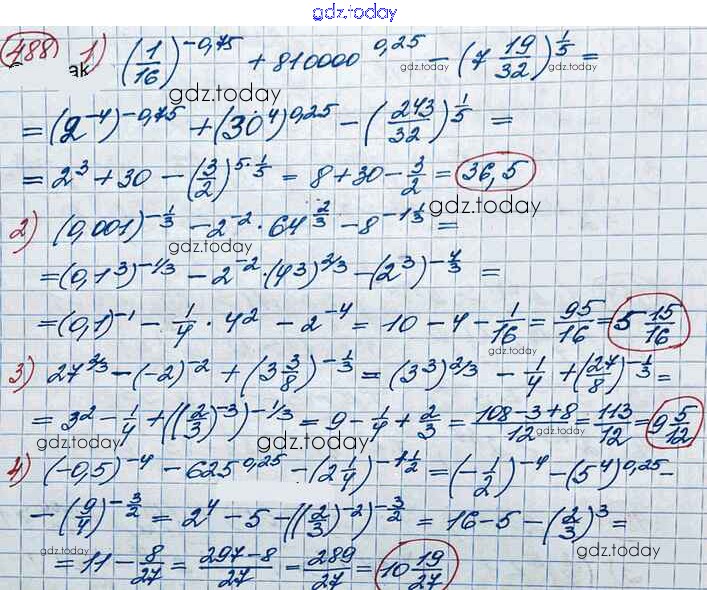 gdz.today
488 1) (1/16)^(-0,75) + 810000^(0,25) - (7 19/32)^(1/5) =
gdz.today gdz.today
gdz.today
= (2^(-4))^(-0,75) + (30^4)^(0,25) - (243/32)^(1/5) =
gdz.today
= 2^3 + 30 - (3/2)^(5·1/5) = 8 + 30 - 3/2 = 36,5
gdz.today
2) (0,001)^(-1/3) - 2^(-2) · 64^(2/3) - 8^(-1 1/3) =
gdz.today
= (0,1^3)^(-1/3) - 2^(-2) · (4^3)^(2/3) - (2^3)^(-4/3) =
= (0,1)^(-1) - 1/4 · 4^2 - 2^(-4) = 10 - 4 - 1/16 = 95/16 = 5 15/16
gdz.today
3) 27^(2/3) - (-2)^(-2) + (3 3/8)^(-1/3) = (3^3)^(2/3) - 1/4 + (27/8)^(-1/3) =
= 3^2 - 1/4 + ((2/3)^(-3))^(-1/3) = 9 - 1/4 + 2/3 = (108-3+8)/12 = 113/12 = 9 5/12
gdz.today gdz.today gdz.today
4) (-0,5)^(-4) - 625^(0,25) - (2 1/4)^(-1 1/2) = (-1/2)^(-4) - (5^4)^(0,25) -
- (9/4)^(-3/2) = 2^4 - 5 - ((2/3)^(-2))^(-3/2) = 16 - 5 - (2/3)^3 =
gdz.today gdz.today gdz.today
= 11 - 8/27 = (297-8)/27 = 289/27 = 10 19/27